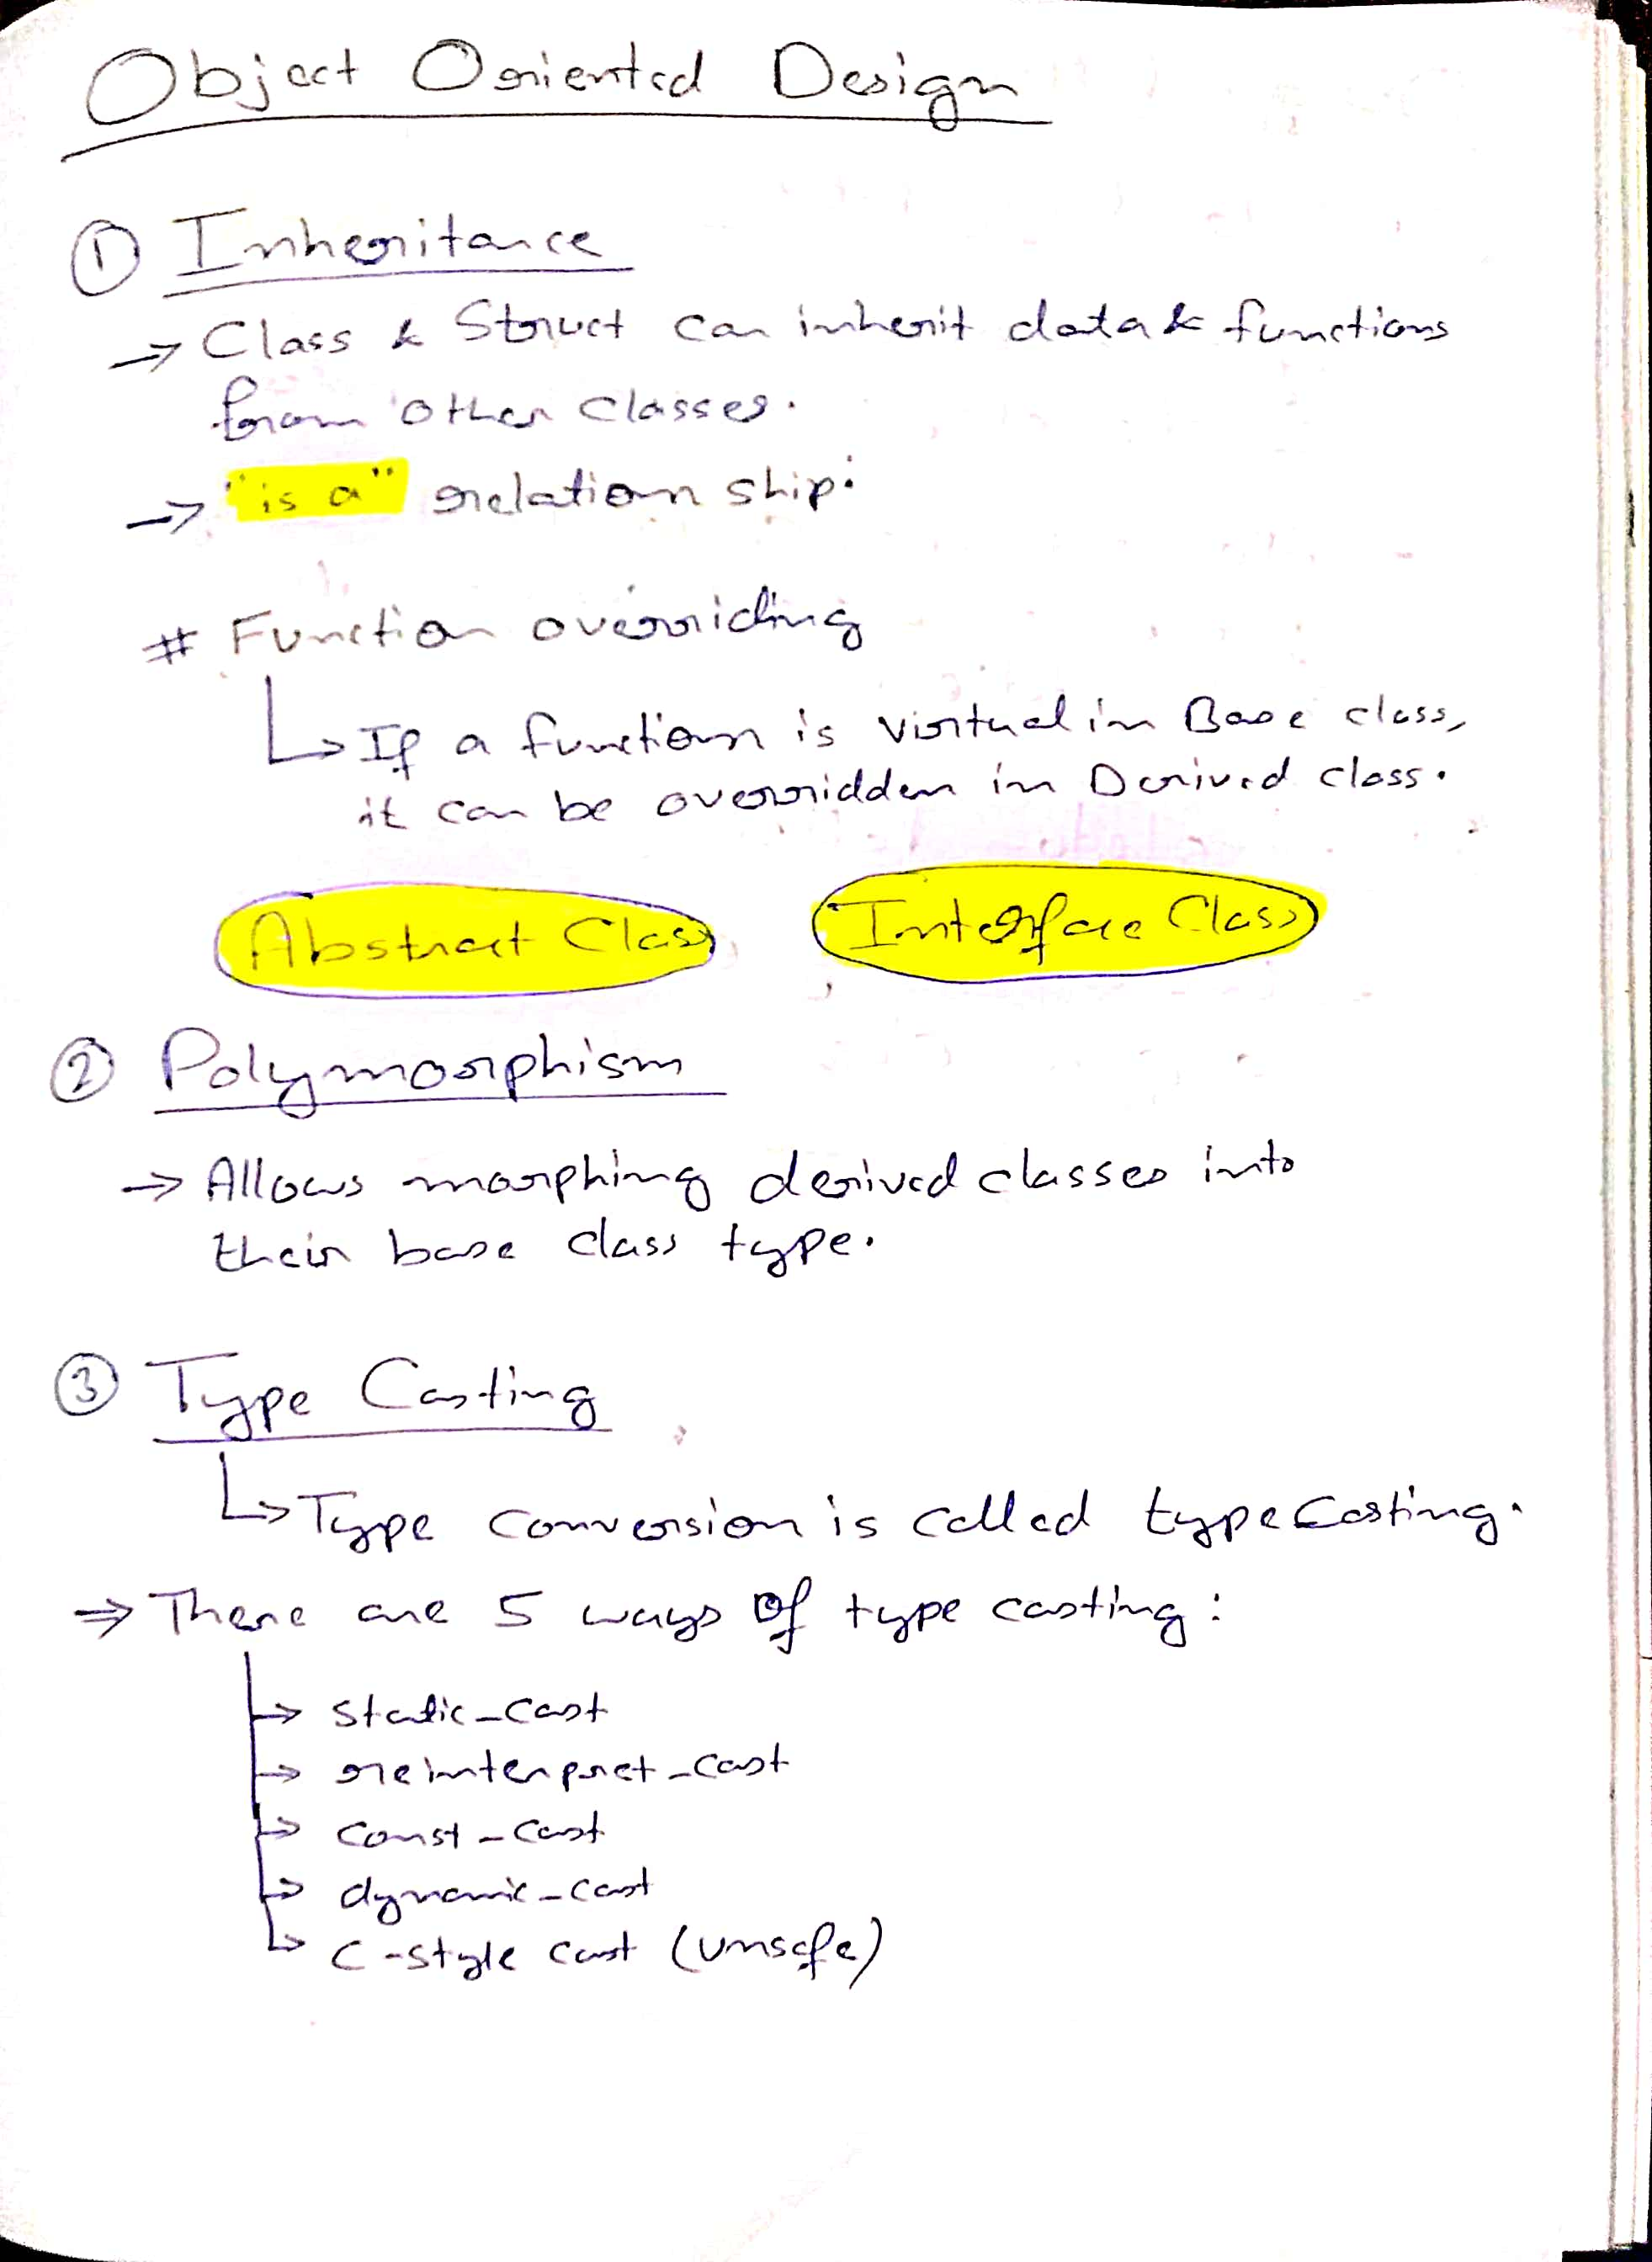 Object Oriented Design
① Inheritance
→ Class & Struct can inherit data & functions
from other classes.
→ "is a" relation ship.
# Function overriding
↳ If a function is virtual in Base class,
it can be overridden in Derived class.
Abstract Class Interface Class
② Polymorphism
→ Allows morphing derived classes into
their base class type.
③ Type Casting
↳ Type conversion is called type casting.
⇒ There are 5 ways of type casting:
→ static_cast
→ reinterpret_cast
→ const_cast
→ dynamic_cast
↳ C-style cast (unsafe)